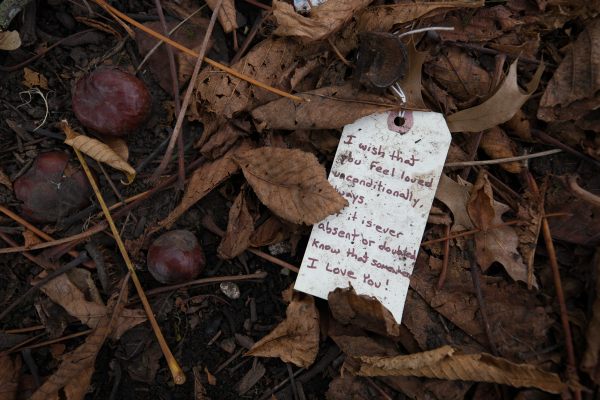 I wish that
you feel loved
unconditionally
ways.
it is ever
absent or doubted
know that someone
I Love You!